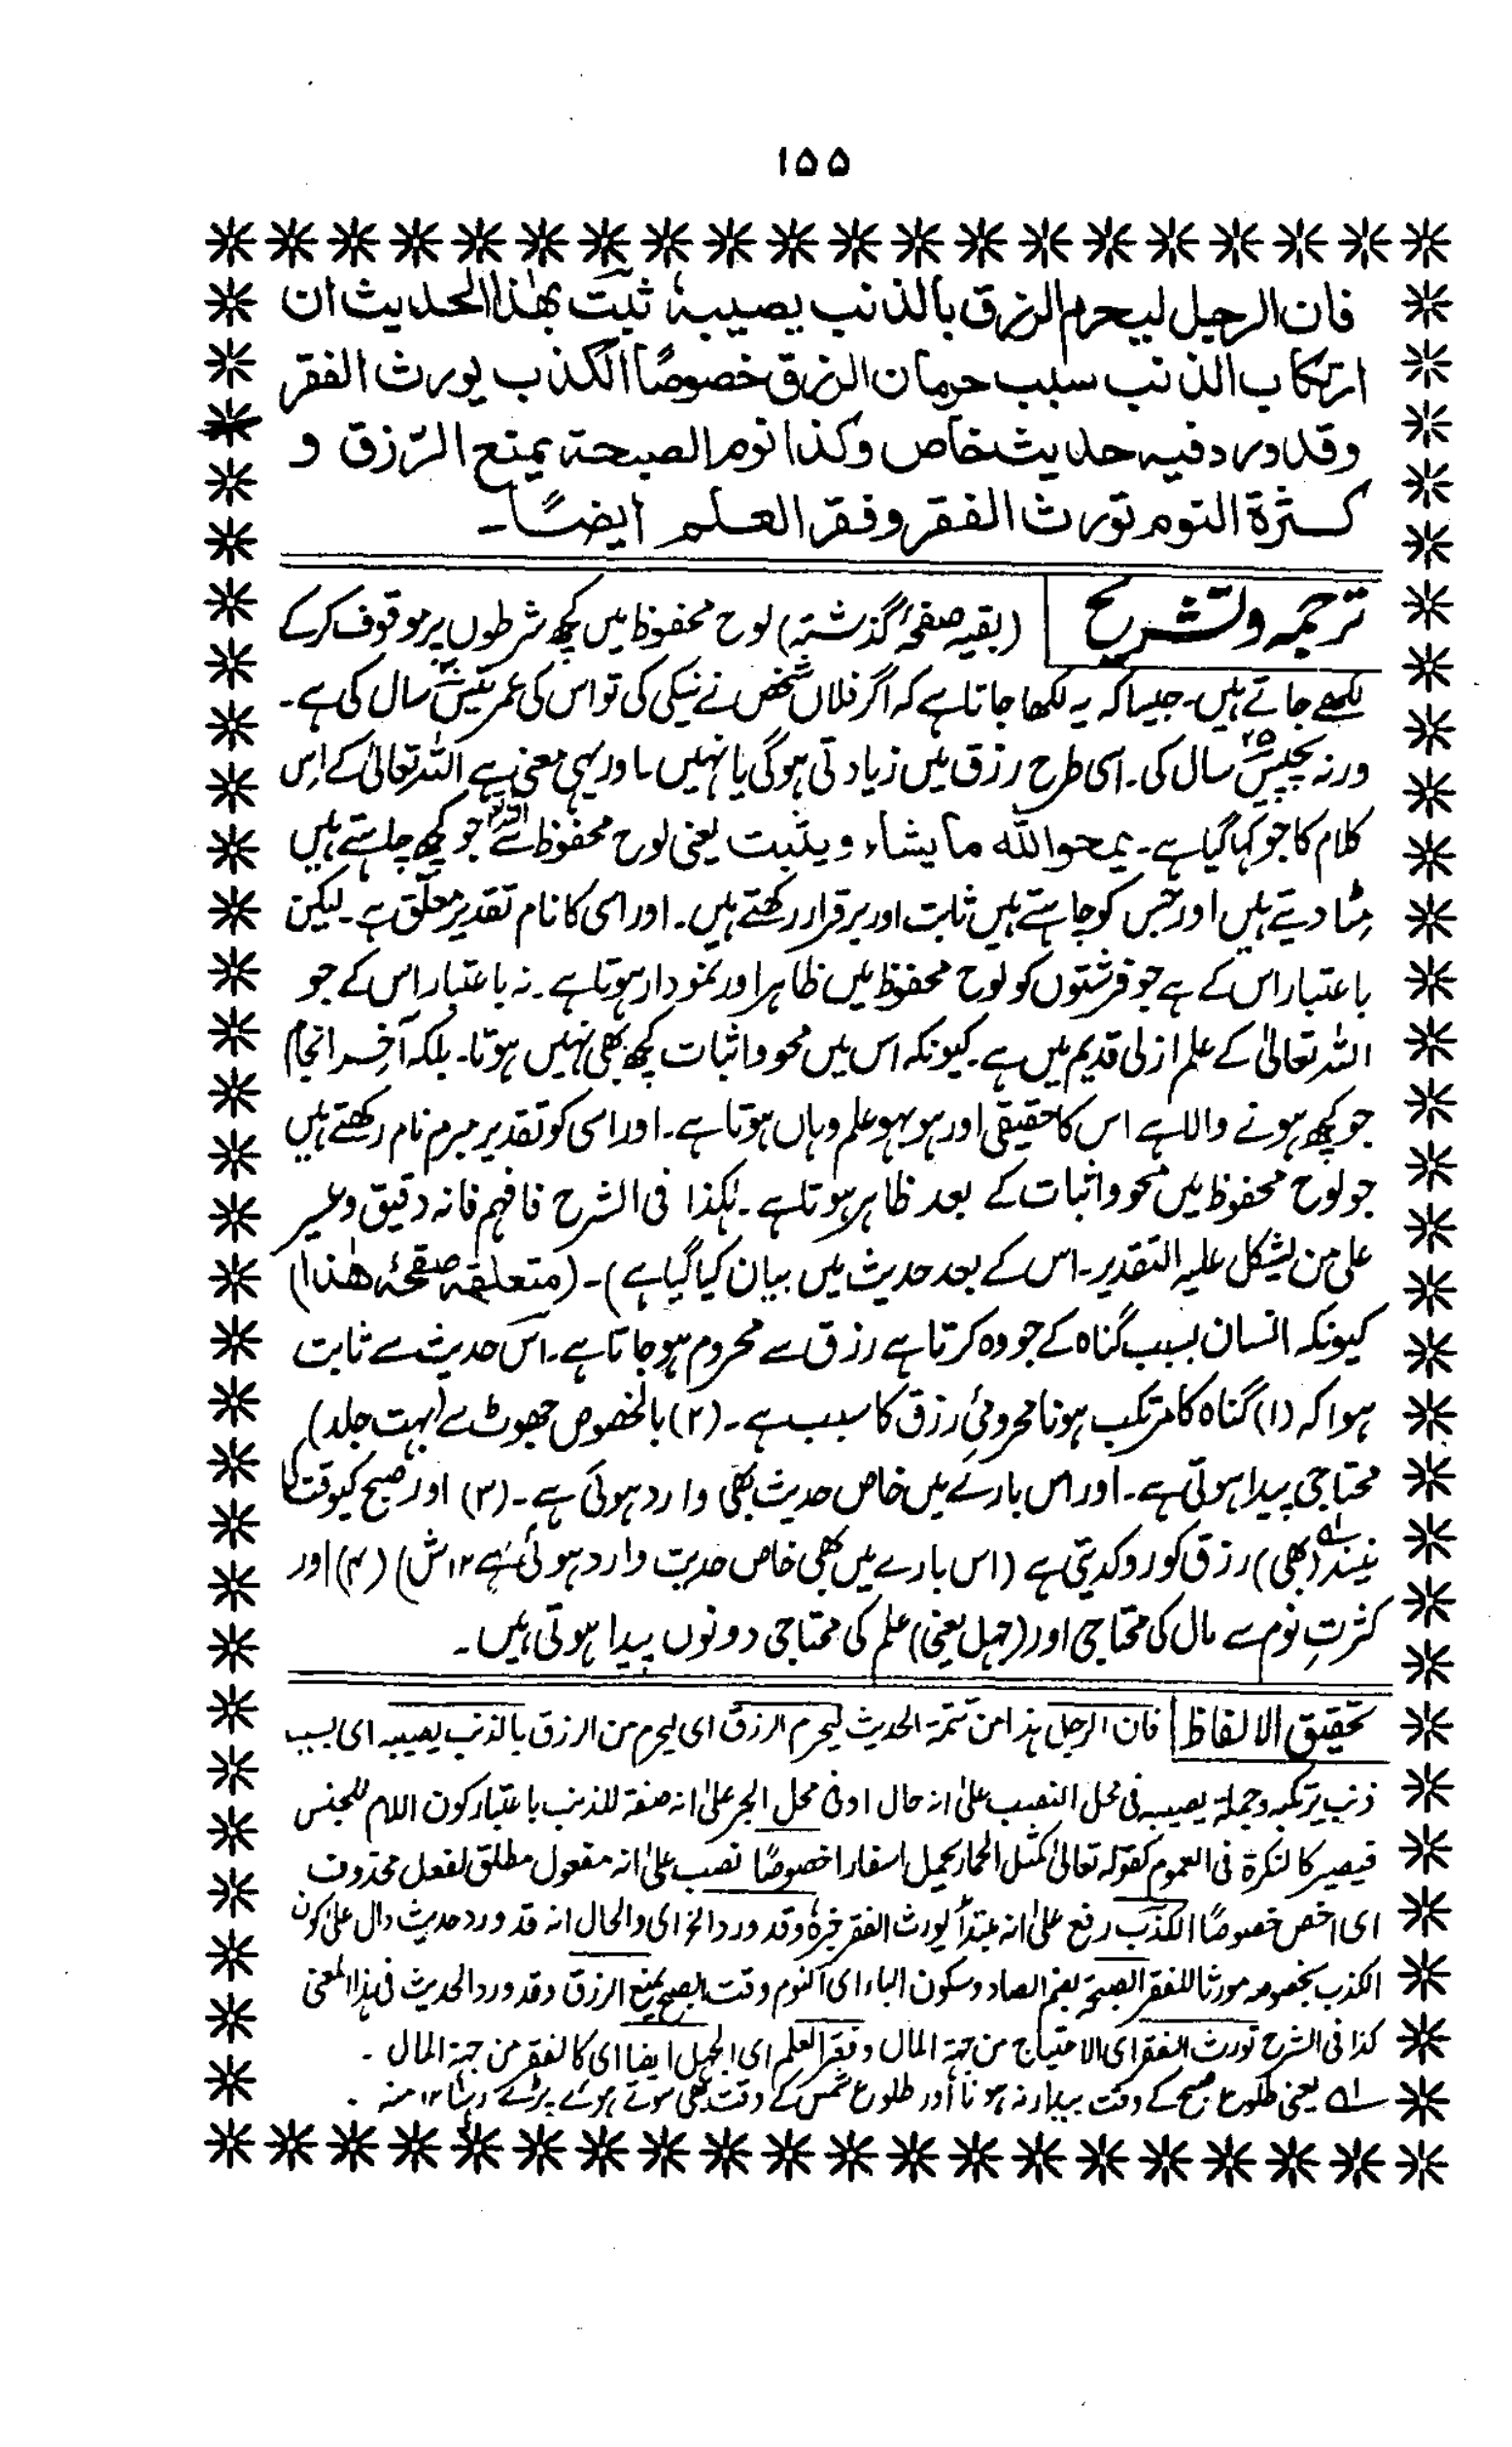 ۱۵۵
فان الرجل ليحرم الرزق بالذنب يصيبهٗ ثبت بهٰذا الحديث ان
ارتكاب الذنب سبب حرمان الرزق خصوصًا الكذب يورث الفقر
وقد ورد فيه حديث خاص وكذا نوم الصبحة يمنع الرّزق و
كثرة النوم تورث الفقر وفقر العلم ايضًا۔
ترجمہ وتشریح (بقیہ صفحۂ گذشتہ) لوح محفوظ میں کچھ شرطوں پر موقوف کرکے
لکھے جاتے ہیں۔ جیسا کہ یہ لکھا جاتا ہے کہ اگر فلاں شخص نے نیکی کی تو اس کی عمر تیس سال کی ہے۔
ورنہ پچیس۲۵ سال کی۔ اسی طرح رزق میں زیادتی ہوگی یا نہیں۔ اور یہی معنی ہے اللہ تعالیٰ کے اِس
کلام کا جو کہا گیا ہے۔ یمحو اللّٰہ ما یشاء ویثبت یعنی لوح محفوظ سے اللہ جو کچھ چاہتے ہیں
مِٹا دیتے ہیں اور جس کو چاہتے ہیں ثابت اور برقرار رکھتے ہیں۔ اور اسی کا نام تقدیر معلّق ہے۔ لیکن
باعتبار اس کے ہے جو فرشتوں کو لوح محفوظ میں ظاہر اور نمودار ہوتا ہے۔ نہ باعتبار اس کے جو
اللہ تعالیٰ کے علم ازلی قدیم میں ہے۔ کیونکہ اس میں محو واثبات کچھ بھی نہیں ہوتا۔ بلکہ آخِر انجام
جو کچھ ہونے والا ہے اس کا حقیقی اور ہو بہو علم وہاں ہوتا ہے۔ اور اسی کو تقدیر مبرم نام رکھتے ہیں
جو لوح محفوظ میں محو واثبات کے بعد ظاہر ہوتا ہے۔ ہٰکذا فی الشرح فافہم فانہ دقیق وعسیر
علی من یشکل علیہ التقدیر۔ اس کے بعد حدیث میں بیان کیا گیا ہے)۔ (متعلقہ صفحۂ ھٰذا)
کیونکہ انسان بسبب گناہ کے جو وہ کرتا ہے رزق سے محروم ہو جاتا ہے۔ اس حدیث سے ثابت
ہوا کہ (۱) گناہ کا مرتکب ہونا محرومئ رزق کا سبب ہے۔ (۲) بالخصوص جھوٹ سے (بہت جلد)
محتاجی پیدا ہوتی ہے۔ اور اس بارے میں خاص حدیث بھی وارد ہوئی ہے۔ (۳) اور صبح کیوقت کی
نیند؂۱ (بھی) رزق کو روکدیتی ہے (اس بارے میں بھی خاص حدیث وارد ہوئی ہے ۱۲ ش) (۴) اور
کثرتِ نوم سے مال کی محتاجی اور (جہل یعنی) علم کی محتاجی دونوں پیدا ہوتی ہیں۔
تحقیق الالفاظ فان الرجل ہذا من تتمۃ الحدیث لیحرم الرزق ای لیحرم من الرزق بالذنب یصیبہ ای بسبب
ذنب یرتکبہ وجملۃ یصیبہ فی محل النصب علیٰ انہ حال او فی محل الجر علیٰ انہ صفۃ للذنب باعتبار کون اللام للجنس
فیصیر کالنکرۃ فی العموم کقولہ تعالیٰ کمثل الحمار یحمل اسفارا خصوصًا نصب علیٰ انہ مفعول مطلق لفعل محذوف
ای اخص خصوصًا الکذب رفع علیٰ انہ مبتدأ یورث الفقر خبرہٗ وقد ورد الخ ای والحال انہ قد ورد حدیث دال علیٰ کون
الکذب بخصوصہ مورثا للفقر الصبحۃ بضم الصاد وسکون الباء ای النوم وقت الصبح یمنع الرزق وقد ورد الحدیث فی ہذا المعنی
کذا فی الشرح تورث الفقر ای الاحتیاج من جہۃ المال وفقر العلم ای الجہل ایضا ای کالفقر من جہۃ المال۔
؂۱ یعنی طلوع صبح کے وقت بیدار نہ ہونا اور طلوع شمس کے وقت بھی سوتے ہوئے پڑے رہنا ۱۲ منہ۔